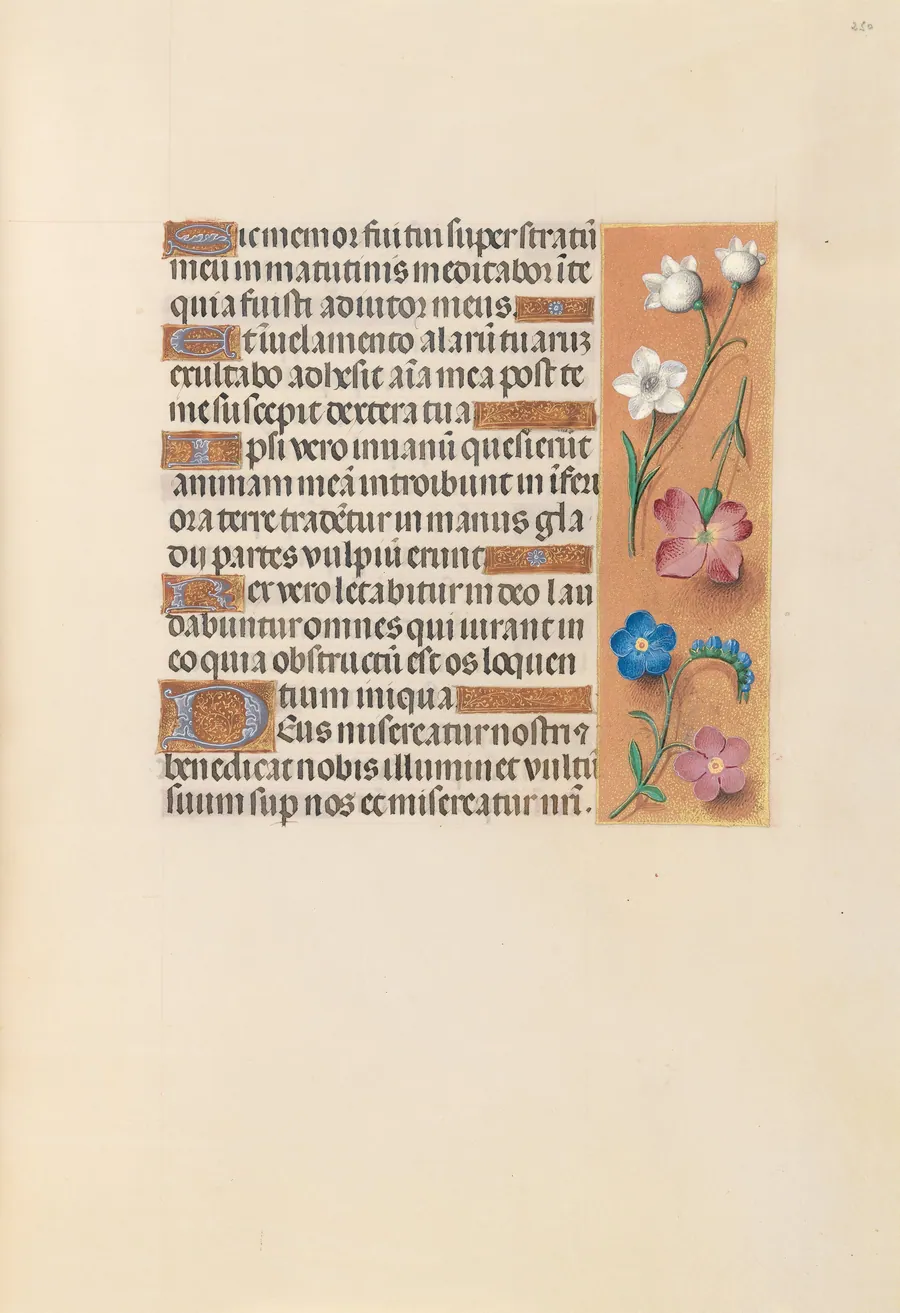 250
Sic memor fui tui super stratū
meū in matutinis meditabor ī te
quia fuisti adiutor meus.
Et ī velamento alarū tuarꝫ
exultabo adhesit aīa mea post te
me suscepit dextera tua
Ipsi vero in vanū quesierūt
animam meā introibunt in īferi
ora terre tradētur in manus gla
dii partes vulpiū erunt
Rex vero letabitur in deo lau
dabuntur omnes qui iurant in
eo quia obstructū est os loquen
tium iniqua
DEus misereatur nostri ⁊
benedicat nobis illuminet vultū
suum sup nos et misereatur nr̄i.